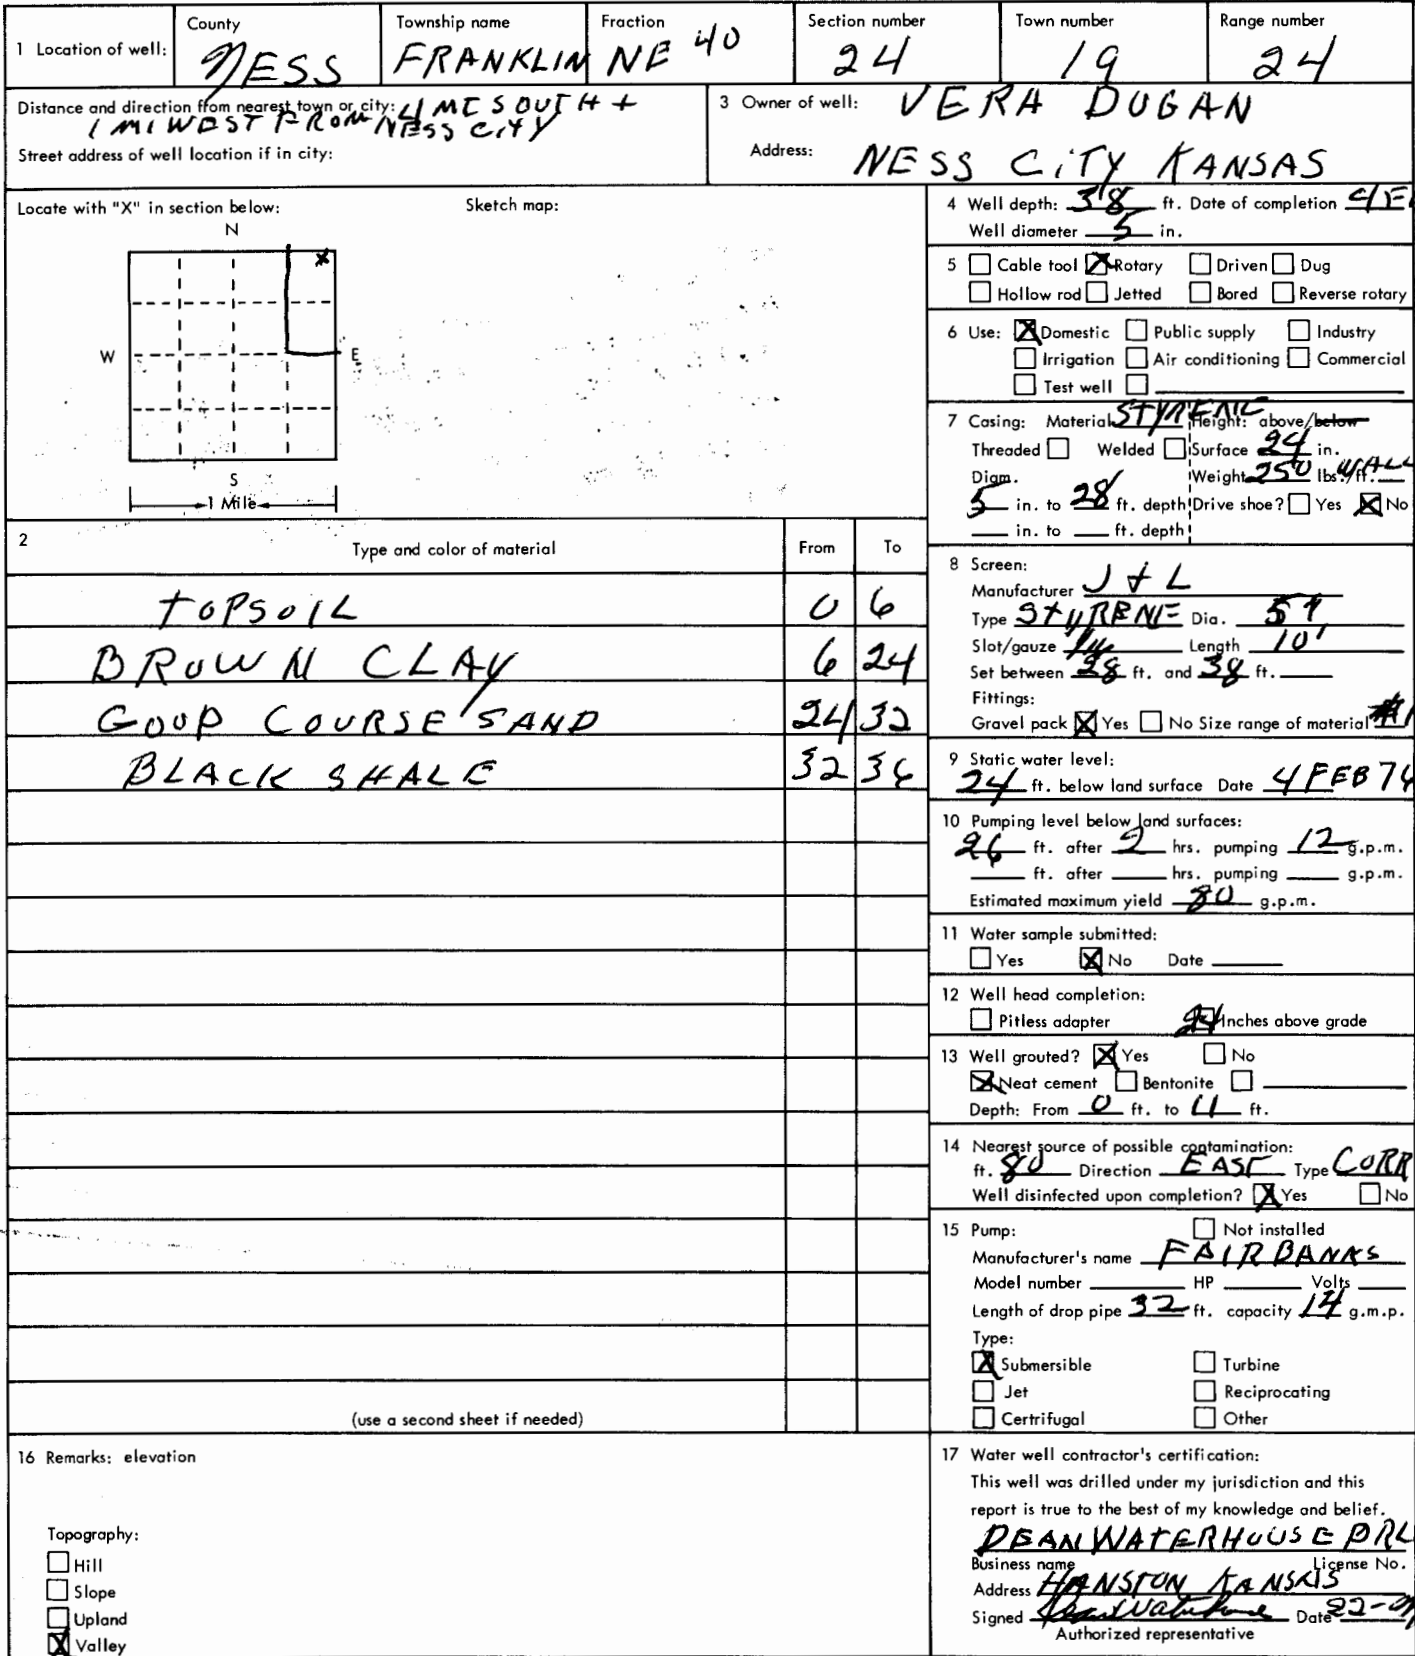 1 Location of well: County Township name Fraction Section number Town number Range number
NESS FRANKLIN NE 40 24 19 24
Distance and direction from nearest town or city: 4 MI SOUTH +
1 MI WEST FROM NESS CITY
Street address of well location if in city:
3 Owner of well: VERA DUGAN
Address: NESS CITY KANSAS
Locate with "X" in section below: Sketch map:
N
X
W E
S
1 Mile
2 Type and color of material From To
TOPSOIL 0 6
BROWN CLAY 6 24
GOOD COURSE SAND 24 32
BLACK SHALE 32 36
(use a second sheet if needed)
4 Well depth: 38 ft. Date of completion
Well diameter 5 in.
5 Cable tool X Rotary Driven Dug
Hollow rod Jetted Bored Reverse rotary
6 Use: X Domestic Public supply Industry
Irrigation Air conditioning Commercial
Test well
7 Casing: Material STYRENE Height: above/below
Threaded Welded Surface 24 in.
Diam. Weight 250 lbs./ft. WALL
5 in. to 28 ft. depth Drive shoe? Yes X No
in. to ft. depth
8 Screen:
Manufacturer J + L
Type STYRENE Dia. 5"
Slot/gauze Length 10'
Set between 28 ft. and 38 ft.
Fittings:
Gravel pack X Yes No Size range of material
9 Static water level:
24 ft. below land surface Date 4 FEB 76
10 Pumping level below land surfaces:
26 ft. after 2 hrs. pumping 12 g.p.m.
ft. after hrs. pumping g.p.m.
Estimated maximum yield 80 g.p.m.
11 Water sample submitted:
Yes X No Date
12 Well head completion:
Pitless adapter 24 Inches above grade
13 Well grouted? X Yes No
X Neat cement Bentonite
Depth: From 0 ft. to 11 ft.
14 Nearest source of possible contamination:
ft. 80 Direction EAST Type CORR
Well disinfected upon completion? X Yes No
15 Pump: Not installed
Manufacturer's name FAIRBANKS
Model number HP Volts
Length of drop pipe 32 ft. capacity 14 g.m.p.
Type:
X Submersible Turbine
Jet Reciprocating
Certrifugal Other
16 Remarks: elevation
Topography:
Hill
Slope
Upland
X Valley
17 Water well contractor's certification:
This well was drilled under my jurisdiction and this
report is true to the best of my knowledge and belief.
DEAN WATERHOUSE DRL
Business name License No.
Address HANSTON KANSAS
Signed Dean Waterhouse Date
Authorized representative